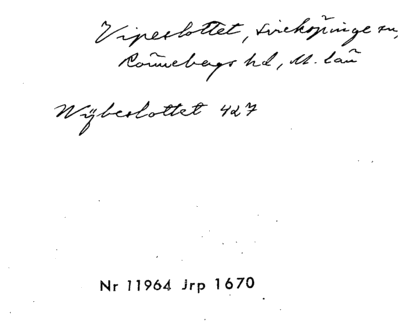 Vipeslottet, Svenköpinge sn,
Rönnebergs hd, M. län
Wÿbeslottet 427
Nr 11964 Jrp 1670